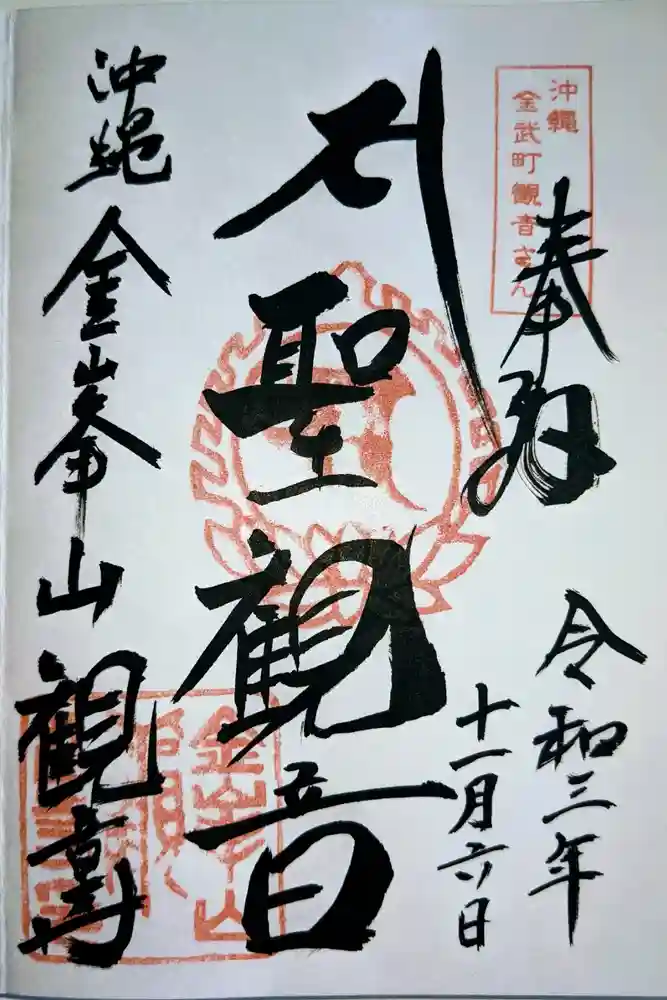 沖縄
金武町観音さん
奉拝
令和三年
十一月六日
聖観音
沖縄
金峯山
観音寺
金峯山